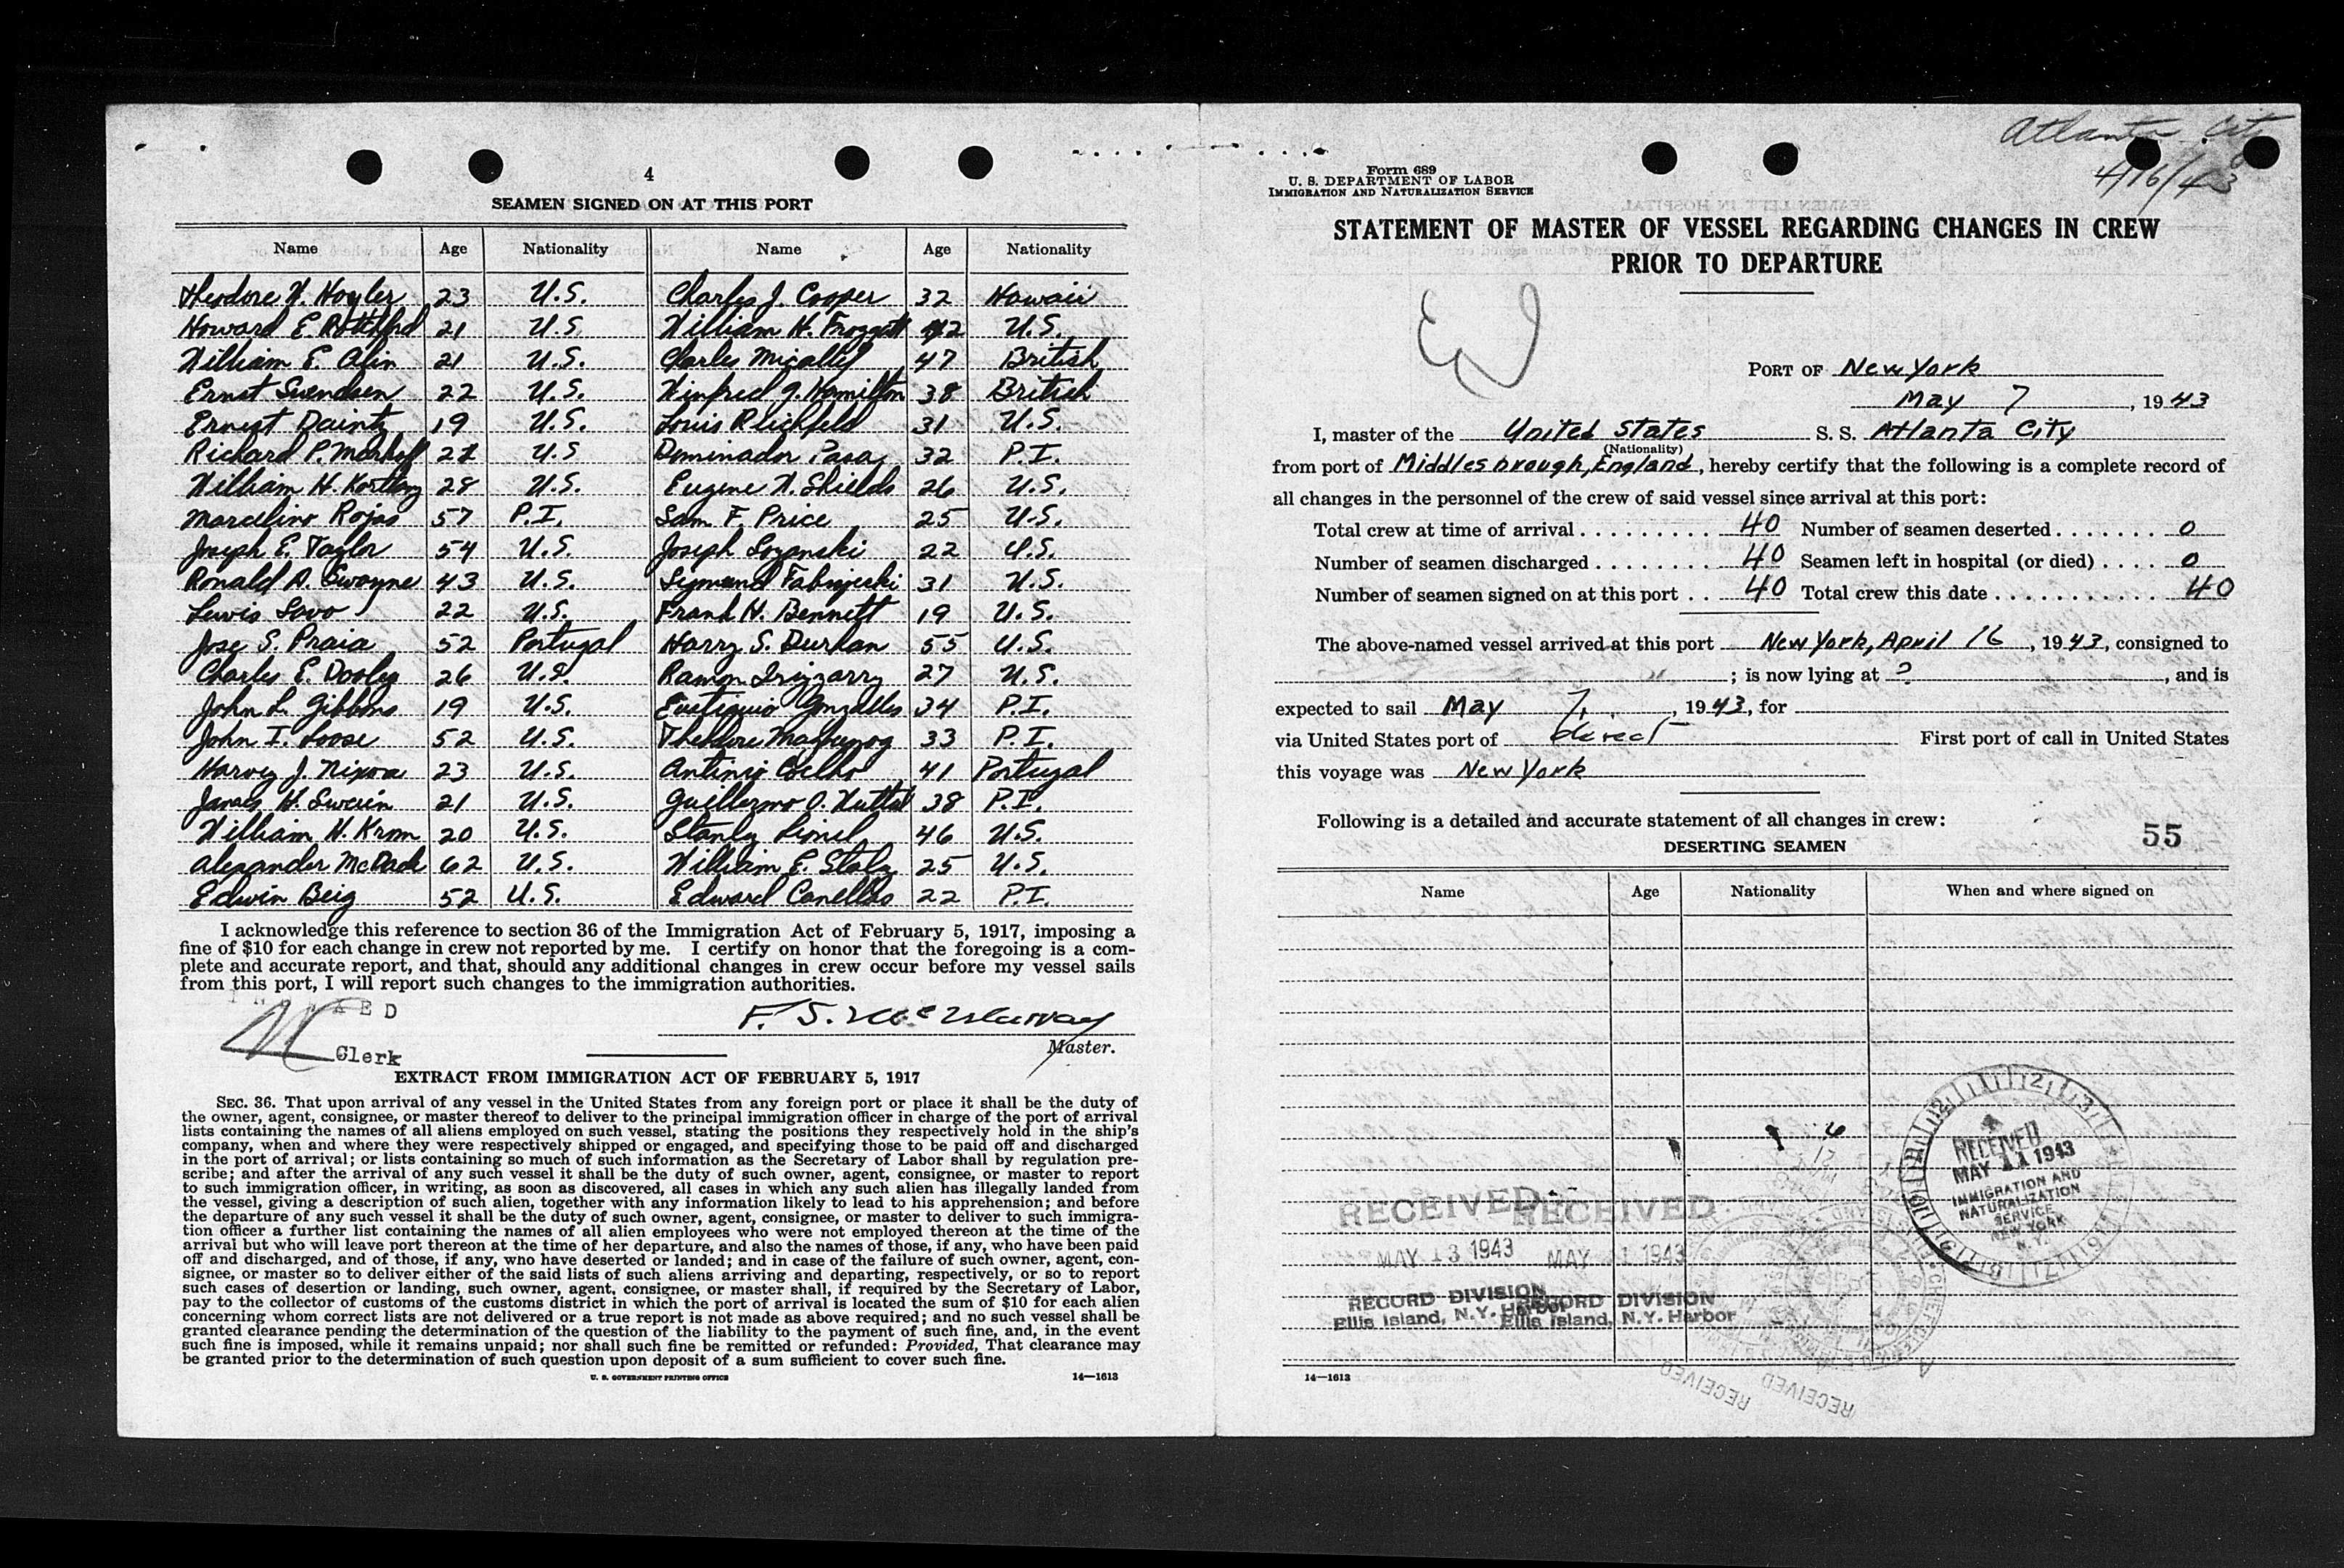 4
SEAMEN SIGNED ON AT THIS PORT
Name Age Nationality Name Age Nationality
Theodore W. Hoyler 23 U.S. Charles J. Cooper 32 Hawaii
Howard E. 21 U.S William H. Froggatt 42 U.S.
William E. Olin 21 U.S. Charles Micallef 47 British
Ernst Swendsen 22 U.S. Winfred J. Hamilton 38 British
Ernest Daintz 19 U.S. Louis Reichfeld 31 U.S.
Richard P. 22 U.S Dominador Pasa 32 P.I.
William H. 28 U.S. Eugene W. Shields 26 U.S.
Marcelino Rojas 57 P.I. Sam F. Price 25 U.S.
Joseph E. Taylor 54 U.S. Joseph Lozanski 22 U.S.
Ronald A. Swayne 43 U.S. 31 U.S.
Lewis Sovo 22 U.S. Frank H. Bennett 19 U.S.
Jose S. Praia 52 Portugal Harry S. Durhan 55 U.S.
Charles E. Dooley 26 U.S. Ramon Irizzarry 27 U.S.
John L. Gibbons 19 U.S. Eutiquio Gonzalles 34 P.I.
John I. Loose 52 U.S. 33 P.I.
Harvey J. Nixon 23 U.S. Antinio Coelho 41 Portugal
James H. Swerin 21 U.S. Guillermo O. 38 P.I.
William H. Krom 20 U.S. Stanly Lionel 46 U.S.
Alexander McDade 62 U.S. William E. Stolz 25 U.S.
Edwin Beig 52 U.S. Edward Canellos 22 P.I.
I acknowledge this reference to section 36 of the Immigration Act of February 5, 1917, imposing a
fine of $10 for each change in crew not reported by me. I certify on honor that the foregoing is a com-
plete and accurate report, and that, should any additional changes in crew occur before my vessel sails
from this port, I will report such changes to the immigration authorities.
Clerk
F. S.
Master.
EXTRACT FROM IMMIGRATION ACT OF FEBRUARY 5, 1917
SEC. 36. That upon arrival of any vessel in the United States from any foreign port or place it shall be the duty of
the owner, agent, consignee, or master thereof to deliver to the principal immigration officer in charge of the port of arrival
lists containing the names of all aliens employed on such vessel, stating the positions they respectively hold in the ship's
company, when and where they were respectively shipped or engaged, and specifying those to be paid off and discharged
in the port of arrival; or lists containing so much of such information as the Secretary of Labor shall by regulation pre-
scribe; and after the arrival of any such vessel it shall be the duty of such owner, agent, consignee, or master to report
to such immigration officer, in writing, as soon as discovered, all cases in which any such alien has illegally landed from
the vessel, giving a description of such alien, together with any information likely to lead to his apprehension; and before
the departure of any such vessel it shall be the duty of such owner, agent, consignee, or master to deliver to such immigra-
tion officer a further list containing the names of all alien employees who were not employed thereon at the time of the
arrival but who will leave port thereon at the time of her departure, and also the names of those, if any, who have been paid
off and discharged, and of those, if any, who have deserted or landed; and in case of the failure of such owner, agent, con-
signee, or master so to deliver either of the said lists of such aliens arriving and departing, respectively, or so to report
such cases of desertion or landing, such owner, agent, consignee, or master shall, if required by the Secretary of Labor,
pay to the collector of customs of the customs district in which the port of arrival is located the sum of $10 for each alien
concerning whom correct lists are not delivered or a true report is not made as above required; and no such vessel shall be
granted clearance pending the determination of the question of the liability to the payment of such fine, and, in the event
such fine is imposed, while it remains unpaid; nor shall such fine be remitted or refunded: Provided, That clearance may
be granted prior to the determination of such question upon deposit of a sum sufficient to cover such fine.
U. S. GOVERNMENT PRINTING OFFICE 14—1613
Atlanta City
4/16/43
Form 689
U. S. DEPARTMENT OF LABOR
IMMIGRATION AND NATURALIZATION SERVICE
STATEMENT OF MASTER OF VESSEL REGARDING CHANGES IN CREW
PRIOR TO DEPARTURE
PORT OF New York
May 7, 1943
I, master of the United States S. S. Atlanta City
(Nationality)
from port of Middlesbrough, England, hereby certify that the following is a complete record of
all changes in the personnel of the crew of said vessel since arrival at this port:
Total crew at time of arrival . . . . . . . . 40 Number of seamen deserted . . . . . . . 0
Number of seamen discharged . . . . . . . 40 Seamen left in hospital (or died) . . . . 0
Number of seamen signed on at this port . . 40 Total crew this date . . . . . . . . . . . 40
The above-named vessel arrived at this port New York, April 16, 1943, consigned to
; is now lying at ?, and is
expected to sail May 7, 1943, for
via United States port of direct First port of call in United States
this voyage was New York
Following is a detailed and accurate statement of all changes in crew:
55
DESERTING SEAMEN
Name Age Nationality When and where signed on
RECEIVED
MAY 11 1943
IMMIGRATION AND
NATURALIZATION
SERVICE
NEW YORK
N. Y.
RECEIVED RECEIVED
MAY 13 1943 MAY 1 1943
RECORD DIVISION RECORD DIVISION
Ellis Island, N.Y. Harbor Ellis Island, N.Y. Harbor
RECEIVED RECEIVED
14—1613